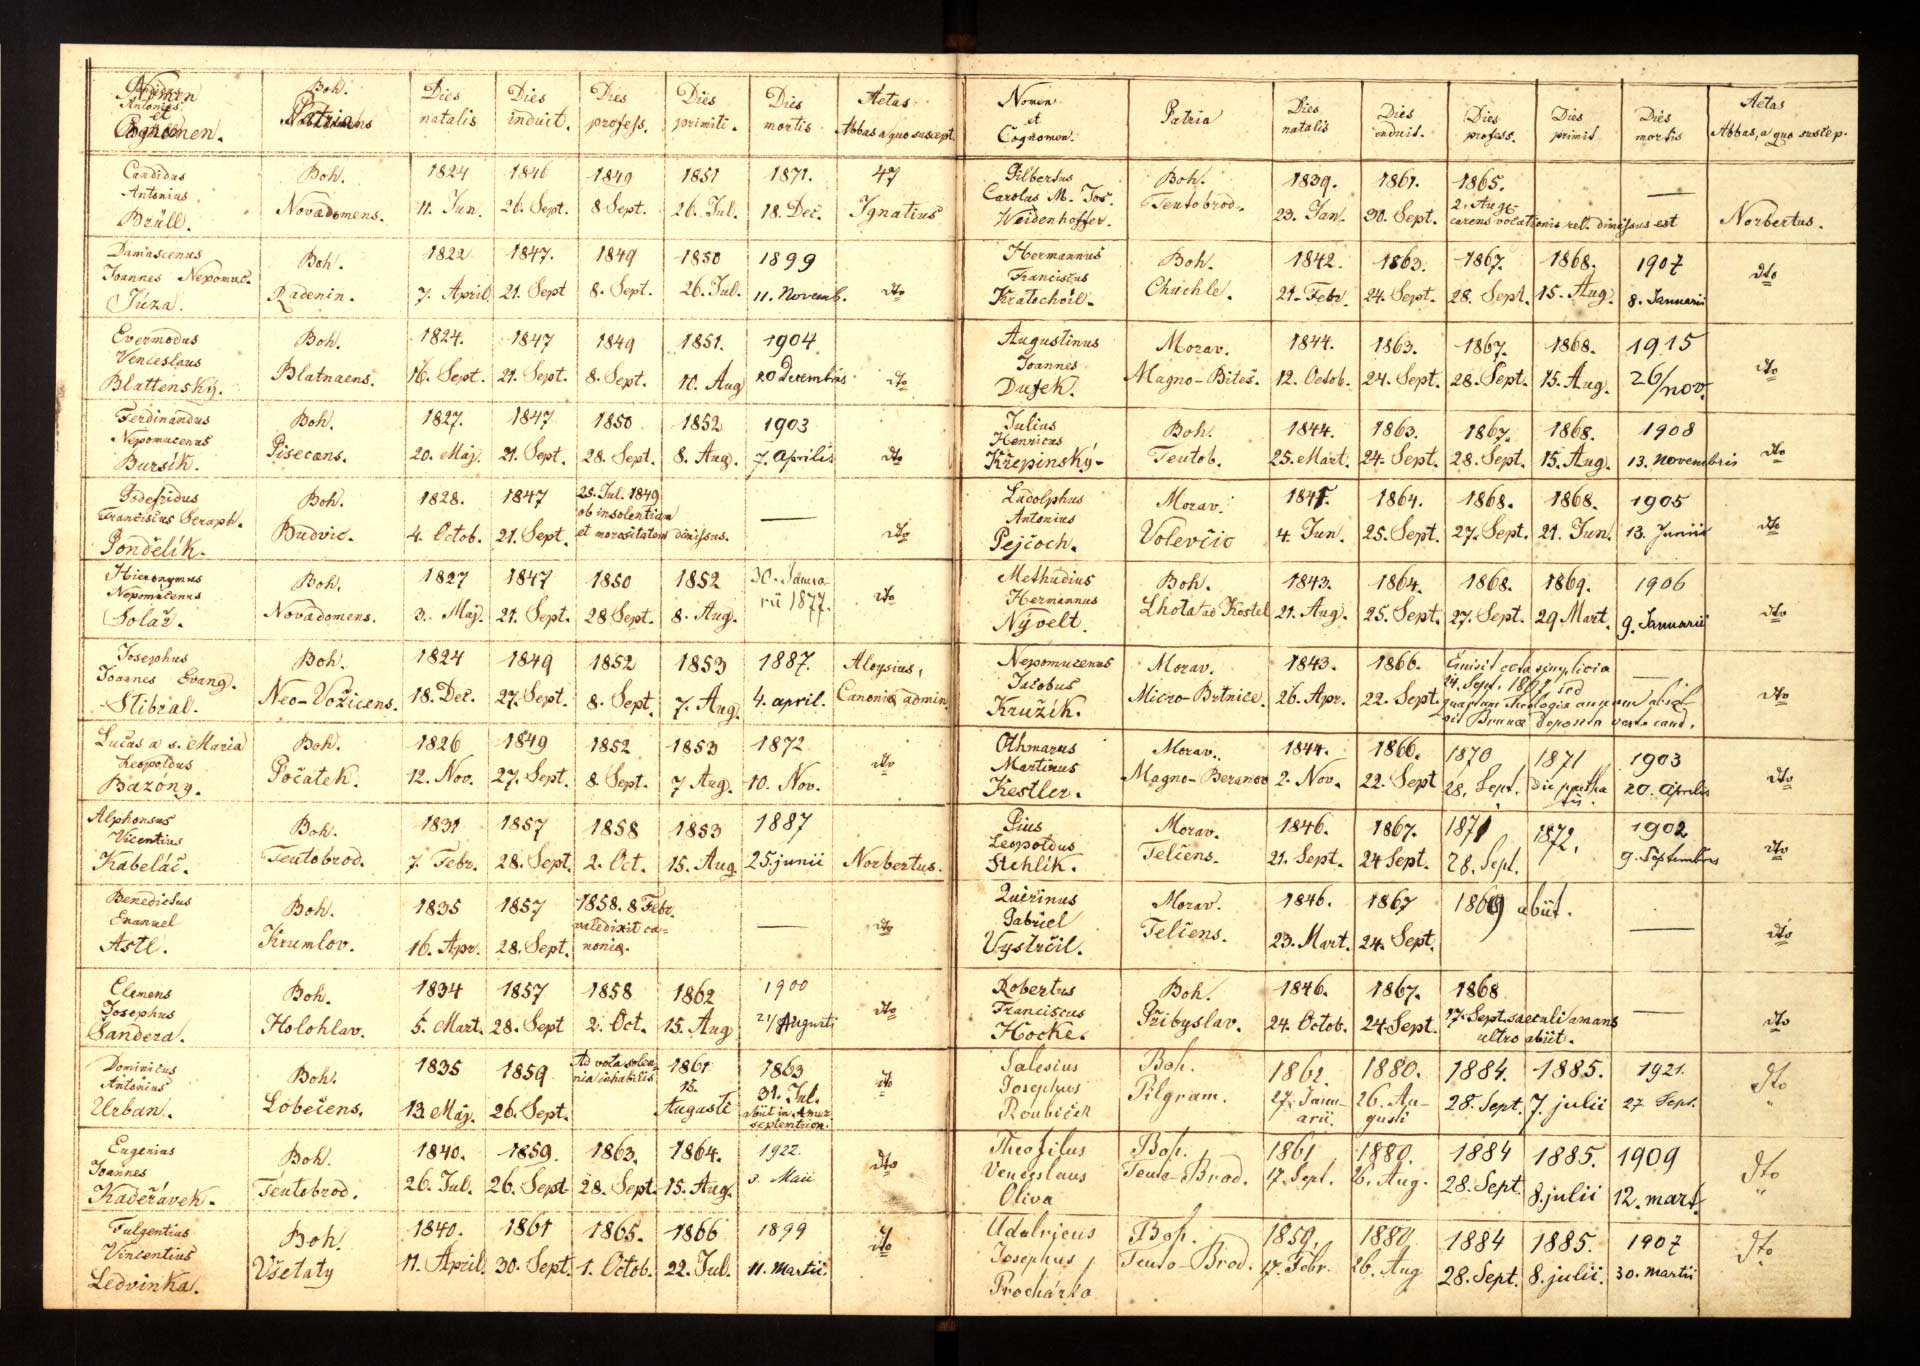 Nomen
et
Cognomen.
Boh.
Patria
Dies
natalis
Dies
induit.
Dies
profess.
Dies
primiti.
Dies
mortis
Aetas
Abbas a quo suscept.
Candidus
Antonius
Brüll.
Boh.
Novadomens.
1824
11. Jun.
1846
26. Sept.
1849
8 Sept.
1851
26. Jul.
1871.
18. Dec.
47
Ignatius
Damascenus
Joannes Nepomuc.
Jůza.
Boh.
Radenin.
1822
7. April
1847.
21. Sept
1849
8. Sept.
1850
26. Jul.
1899
11. Novemb.
dto
Evermodus
Venceslaus
Blattenský.
Boh.
Blatnaens.
1824.
16. Sept.
1847
21. Sept.
1849
8. Sept.
1851.
10. Aug
1904
20 Decembris
dto
Ferdinandus
Nepomucenus
Bursík.
Boh.
Pisecens.
1827.
20. Maj.
1847
21. Sept.
1850
28. Sept.
1852
8. Aug.
1903
7. Aprilis
dto
Godefridus
Franciscus Seraph.
Pondělík.
Boh.
Budvic.
1828.
4. Octob.
1847
21. Sept.
25. Jul. 1849
ob insolentiam
et morositatem dimissus.
—
dto
Hieronymus
Nepomucenus
Solař.
Boh.
Novadomens.
1827
3. Maj.
1847
21. Sept.
1850
28 Sept.
1852
8. Aug.
30. Janua-
rii 1877.
dto
Josephus
Joannes Evang.
Stibral.
Boh.
Neo-Vožicens.
1824
18. Dec.
1849
27. Sept.
1852
8. Sept.
1853
7. Aug.
1887.
4. april.
Aloysius,
Canoniae admin.
Lucas a s. Maria
Leopoldus
Bazóny.
Boh.
Počatek.
1826
12. Nov.
1849
27. Sept.
1852
8 Sept.
1853
7 Aug.
1872
10. Nov.
dto
Alphonsus
Vicentius
Kabeláč.
Boh.
Teutobrod.
1831
7. Febr.
1857
28. Sept.
1858
2. Oct.
1853
15. Aug.
1887
25. junii
Norbertus.
Benedictus
Emanuel
Astl.
Boh.
Krumlov.
1835
16. Apr.
1857
28. Sept.
1858. 8 Febr.
valedixit ca-
noniae.
—
dto
Clemens
Josephus
Šandera.
Boh.
Holohlav.
1834
5. Mart.
1857
28. Sept
1858
2. Oct.
1862
15. Aug
1900
21/Augusti
dto
Dominicus
Antonius
Urban.
Boh.
Lobečens.
1835
13. Maj.
1859
26. Sept.
Ad vota solem-
nia inhabilis
1861
15.
Augusti
1863
31. Jul.
abiit in Amer
septemtrion.
dto
Eugenius
Joannes
Kadeřávek.
Boh.
Teutobrod.
1840.
26. Jul.
1859.
26. Sept
1863.
28. Sept.
1864.
15. Aug.
1922.
3. Maii
dto
Fulgentius
Vincentius
Ledvinka.
Boh.
Všetaty
1840.
11. April.
1861
30. Sept.
1865.
1. Octob.
1866
22. Jul.
1899
11. Martii
dto
Nomen
et
Cognomen.
Patria
Dies
natalis
Dies
induit.
Dies
profess.
Dies
primit
Dies
mortis
Aetas
Abbas, a quo suscep.
Gilbertus
Carolus M. Jos.
Weidenhoffer.
Boh.
Teutobrod.
1839.
23. Jan.
1861.
30. Sept.
1865.
2. Aug.
carens vocationis rel. dimissus est
—
Norbertus.
Hermannus
Franciscus
Kratochvíl.
Boh.
Chuchle.
1842.
21. Febr.
1863.
24. Sept.
1867.
28. Sept.
1868.
15. Aug.
1907
8. Januarii
dto
Augustinus
Joannes
Dufek.
Morav.
Magno-Biteš.
1844.
12. Octob.
1863.
24. Sept.
1867.
28. Sept.
1868.
15. Aug.
1915
26/nov.
dto
Julius
Henricus
Křepinský.
Boh.
Teutob.
1844.
25. Mart.
1863.
24. Sept.
1867.
28. Sept.
1868.
15. Aug.
1908
13. Novembris
dto
Ludolphus
Antonius
Pejčoch.
Morav.
Volevčic
4. Jun.
1864.
25. Sept.
1868.
27. Sept.
1868.
21. Jun.
1905
13. Junii
dto
Methudius
Hermannus
Nývelt.
Boh.
Lhota ad Kostel
1843.
21. Aug.
1864.
25. Sept.
1868.
27. Sept.
1869.
29 Mart.
1906
9. Januarii
dto
Nepomucenus
Jacobus
Kružík.
Morav.
Micro-Brtnice.
1843.
26. Apr.
1866.
22. Sept.
Emisit vota simplicia
sed
quartum theologiae annum
Brunae deposita veste cand.
—
dto
Othmarus
Martinus
Kestler.
Morav.
Magno-Beranov
1844.
2. Nov.
1866.
22. Sept
1870
28. Sept.
1871
1903
20. Aprilis
dto
Pius
Leopoldus
Stehlík.
Morav.
Telčens.
1846.
21. Sept.
1867.
24 Sept.
1871
28. Sept.
1872.
1902
9. Septembris
dto
Quirinus
Gabriel
Vystrčil.
Morav.
Telčens.
1846.
23. Mart.
1867
24. Sept.
1869 abiit.
—
dto
Robertus
Franciscus
Hocke.
Boh.
Přibyslav.
1846.
24. Octob.
1867.
24 Sept.
1868
27. Sept. saeculi amans
ultro abiit.
—
dto
Salesius
Josephus
Roubíček
Boh.
Pilgram.
1862.
27. Janu-
arii.
1880.
26. Au-
gusti
1884.
28. Sept.
1885.
7. julii
1921.
27 Sept.
dto
"
Theofilus
Venceslaus
Oliva
Boh.
Teuto-Brod.
1861
17. Sept.
1880.
26. Aug.
1884
28. Sept.
1885.
8. julii
1909
12. mart.
dto
"
Udalricus
Josephus
Procházka
Boh.
Teuto-Brod.
1859.
17. Febr.
1880
26. Aug
1884
28. Sept.
1885.
8. julii.
1907
30. Martii
dto